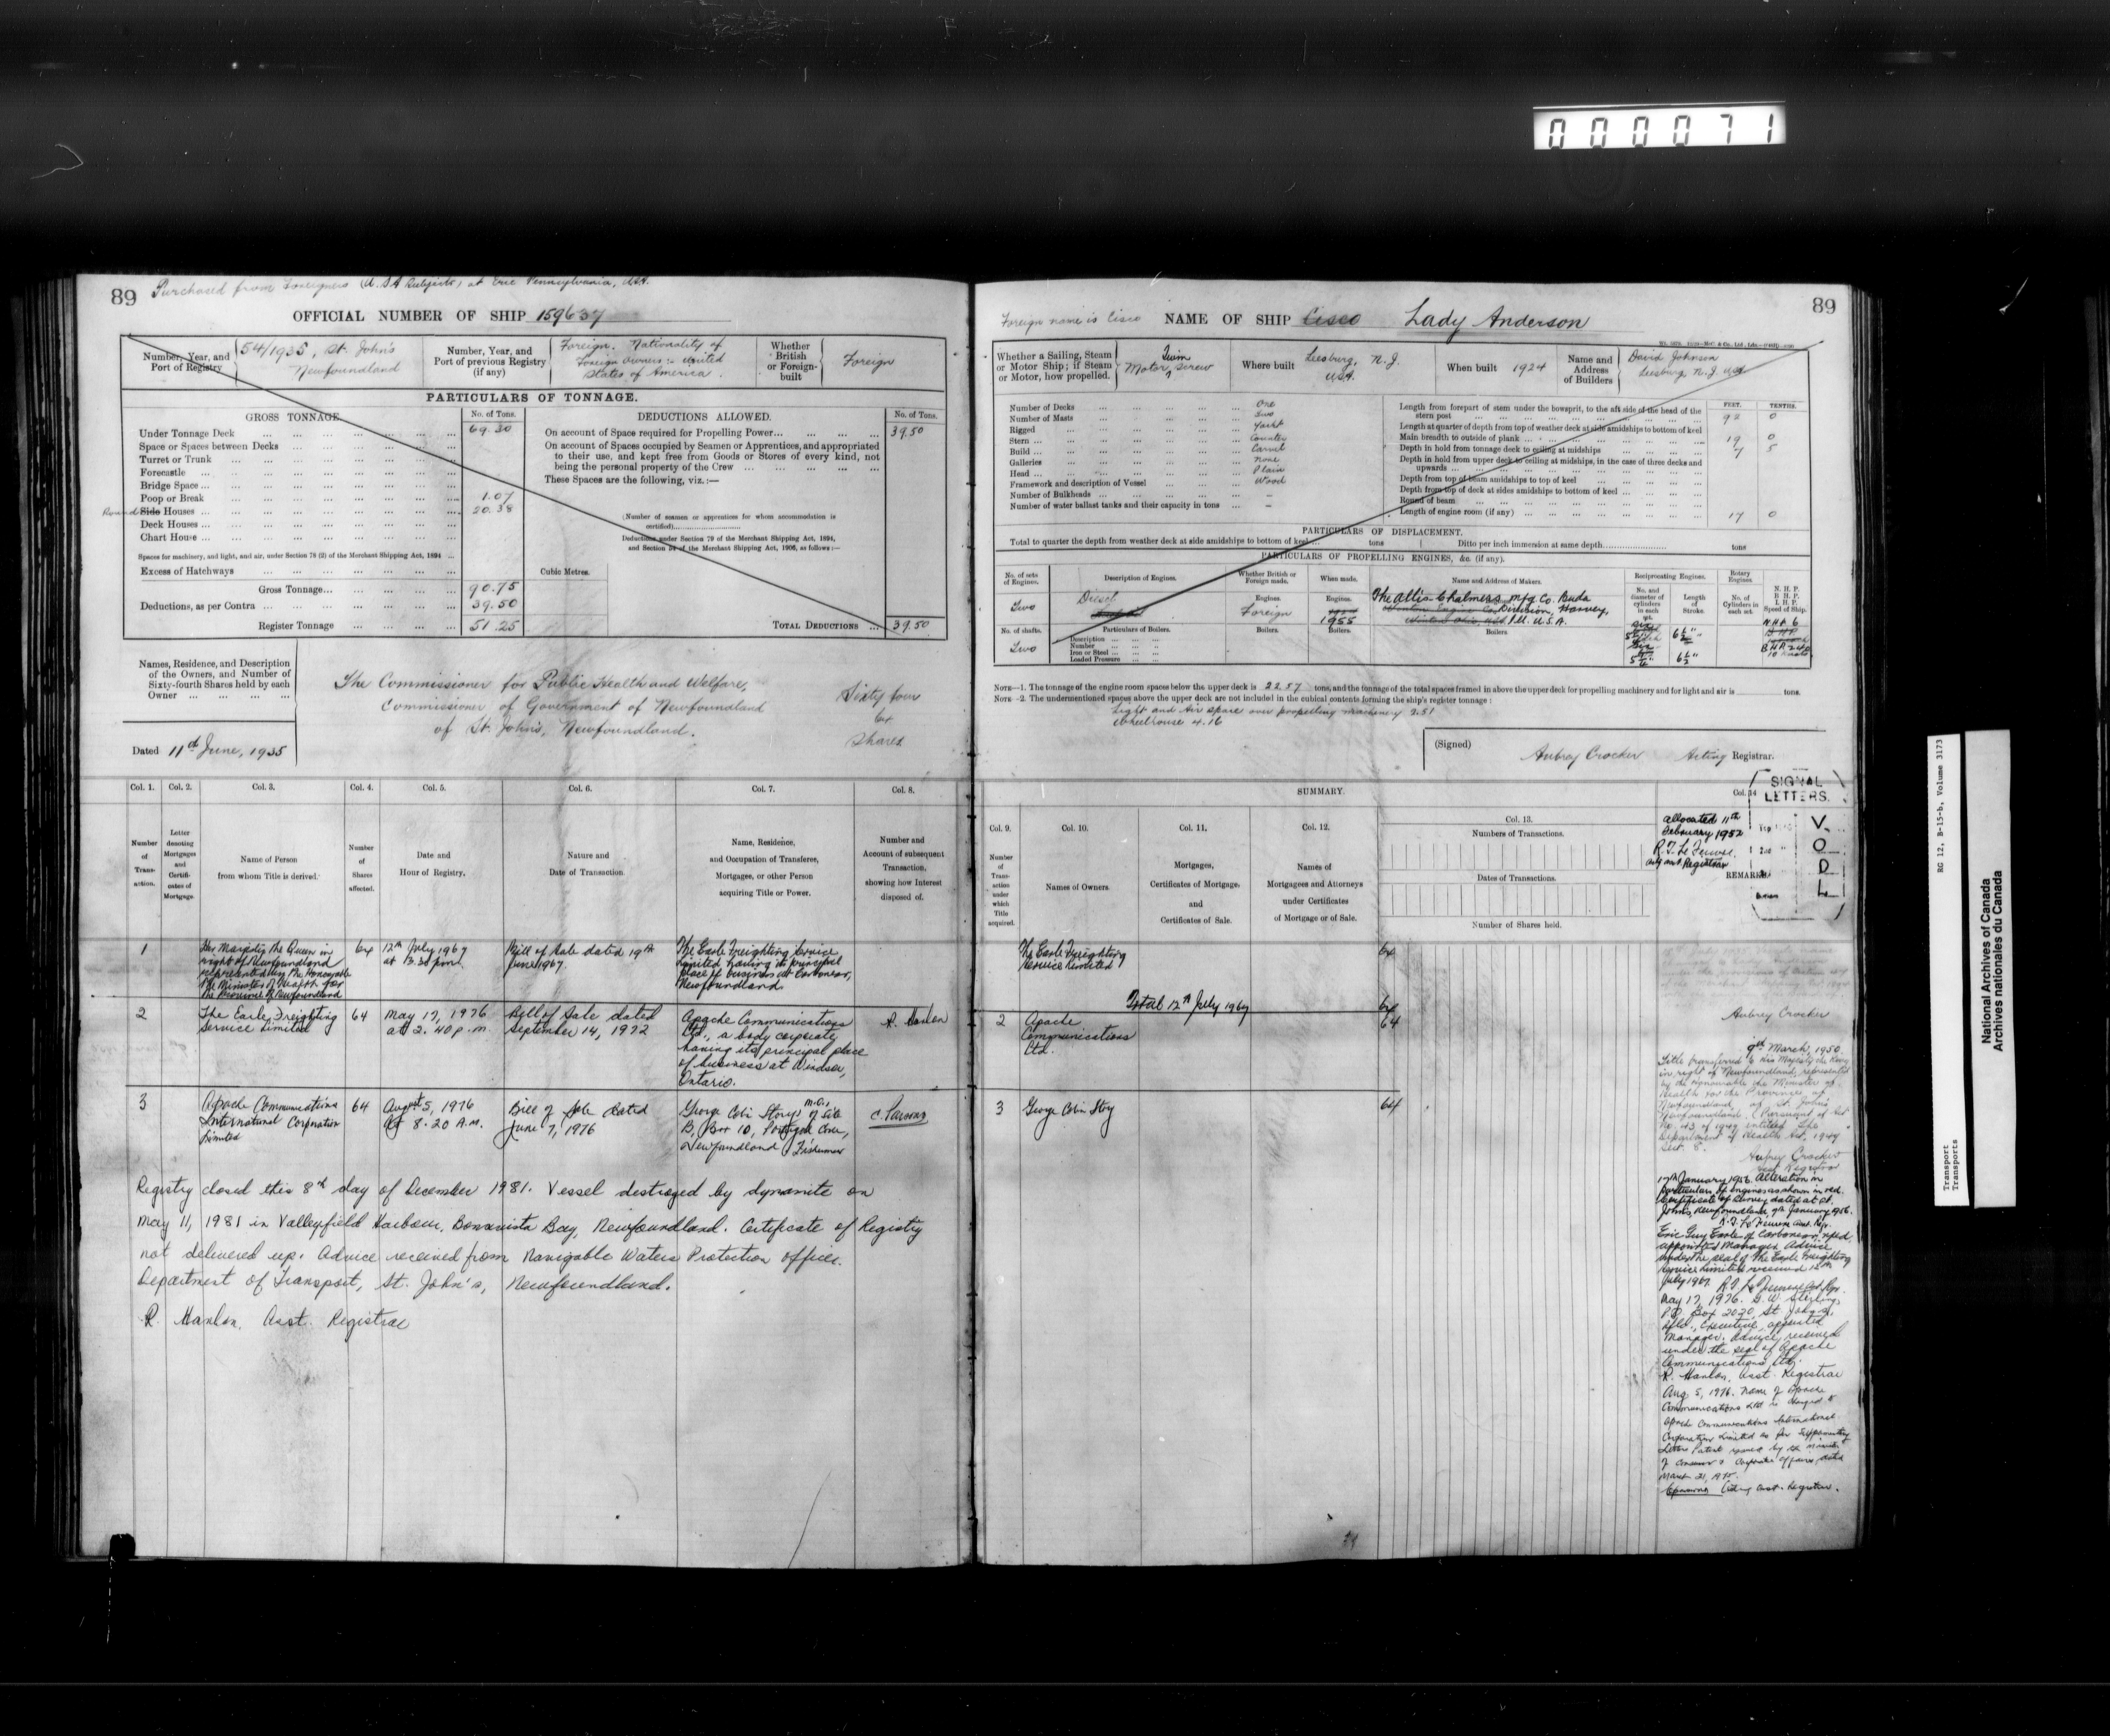 0 0 0 0 7 1
89 Purchased from Foreigners (U.S.A Subjects) at Erie Pennsylvania, USA.
OFFICIAL NUMBER OF SHIP 159637
Number, Year, and Port of Registry
54/1935, St. John's Newfoundland
Number, Year, and Port of previous Registry (if any)
Foreign. Nationality of Foreign owners:- United States of America.
Whether British or Foreign-built
Foreign
PARTICULARS OF TONNAGE.
GROSS TONNAGE. No. of Tons.
Under Tonnage Deck 69.30
Space or Spaces between Decks
Turret or Trunk
Forecastle
Bridge Space
Poop or Break 1.07
Round Side Houses 20.38
Deck Houses
Chart House
Spaces for machinery, and light, and air, under Section 78 (2) of the Merchant Shipping Act, 1894
Excess of Hatchways
Gross Tonnage 90.75
Deductions, as per Contra 39.50
Register Tonnage 51.25
DEDUCTIONS ALLOWED. No. of Tons.
On account of Space required for Propelling Power 39.50
On account of Spaces occupied by Seamen or Apprentices, and appropriated
to their use, and kept free from Goods or Stores of every kind, not
being the personal property of the Crew
These Spaces are the following, viz.:—
(Number of seamen or apprentices for whom accommodation is
certified)
Deductions under Section 79 of the Merchant Shipping Act, 1894,
and Section 54 of the Merchant Shipping Act, 1906, as follows:—
Cubic Metres.
TOTAL DEDUCTIONS 39.50
Names, Residence, and Description
of the Owners, and Number of
Sixty-fourth Shares held by each
Owner
The Commissioner for Public Health and Welfare,
Commissioner of Government of Newfoundland
of St. John's, Newfoundland.
Sixty four
64
Shares
Dated 11th June, 1935
Col. 1. Col. 2. Col. 3. Col. 4. Col. 5. Col. 6. Col. 7. Col. 8.
Number of Transaction.
Letter denoting Mortgages and Certificates of Mortgage.
Name of Person from whom Title is derived.
Number of Shares affected.
Date and Hour of Registry.
Nature and Date of Transaction.
Name, Residence, and Occupation of Transferee, Mortgagee, or other Person acquiring Title or Power.
Number and Account of subsequent Transaction, showing how Interest disposed of.
1
Her Majesty the Queen in
right of Newfoundland
represented by the Honourable
the Minister of Health for
the Province of Newfoundland
64
12th July 1967
at 3.30 p.m.
Bill of Sale dated 19th
June 1967.
The Earle Freighting Service
Limited having its principal
place of business at Carbonear,
Newfoundland.
2
The Earle Freighting
Service Limited
64
May 17, 1976
at 2.40 p.m.
Bill of Sale dated
September 14, 1972
Apache Communications
Ltd., a body corporate,
having its principal place
of business at Windsor,
Ontario.
R. Hanlon
3
Apache Communications
International Corporation
Limited
64
August 5, 1976
at 8.20 A.M.
Bill of Sale dated
June 7, 1976
George Colin Story, of Site
B, Box 10, Portugal Cove,
Newfoundland, Fisherman
C. Parsons
Registry closed this 8th day of December 1981. Vessel destroyed by dynamite on
May 11, 1981 in Valleyfield Harbour, Bonavista Bay, Newfoundland. Certificate of Registry
not delivered up. Advice received from Navigable Waters Protection officer.
Department of Transport, St. John's, Newfoundland.
R. Hanlon, Asst. Registrar
Foreign name is Cisco NAME OF SHIP Cisco Lady Anderson
89
Whether a Sailing, Steam or Motor Ship; if Steam or Motor, how propelled.
Motor Twin Screw
Where built
Leesburg, N.J.
USA.
When built 1924
Name and Address of Builders
David Johnson
Leesburg, N.J. USA
Number of Decks One
Number of Masts Two
Rigged Yacht
Stern Counter
Build Carvel
Galleries None
Head Plain
Framework and description of Vessel Wood
Number of Bulkheads –
Number of water ballast tanks and their capacity in tons –
FEET. TENTHS.
Length from forepart of stem under the bowsprit, to the aft side of the head of the
stern post 92 0
Length at quarter of depth from top of weather deck at side amidships to bottom of keel
Main breadth to outside of plank 19 0
Depth in hold from tonnage deck to ceiling at midships 7 5
Depth in hold from upper deck to ceiling at midships, in the case of three decks and
upwards
Depth from top of beam amidships to top of keel
Depth from top of deck at sides amidships to bottom of keel
Round of beam
Length of engine room (if any) 17 0
PARTICULARS OF DISPLACEMENT.
Total to quarter the depth from weather deck at side amidships to bottom of keel tons
Ditto per inch immersion at same depth tons
PARTICULARS OF PROPELLING ENGINES, &c. (if any).
No. of sets of Engines.
Description of Engines.
Whether British or Foreign made.
When made.
Name and Address of Makers.
Reciprocating Engines.
Rotary Engines.
No. and diameter of cylinders in each set.
Length of Stroke.
No. of Cylinders in each set.
N. H. P.
B. H. P.
I. H. P.
Speed of Ship.
Two
Diesel
Engines.
Foreign
Engines.
1955
The Allis-Chalmers Mfg Co. Buda
Division, Harvey,
Ill. U.S.A.
6½"
N.H.P. 6
B.H.P. 240
10 knots
No. of shafts.
Two
Particulars of Boilers.
Description
Number
Iron or Steel
Loaded Pressure
Boilers. Boilers. Boilers
NOTE—1. The tonnage of the engine room spaces below the upper deck is 22.87 tons, and the tonnage of the total spaces framed in above the upper deck for propelling machinery and for light and air is tons.
NOTE -2. The undermentioned spaces above the upper deck are not included in the cubical contents forming the ship's register tonnage:
Light and Air space over propelling machinery 2.51
Wheelhouse 4.16
(Signed) Aubrey Crocker Acting Registrar.
SUMMARY.
Col. 9. Col. 10. Col. 11. Col. 12. Col. 13. Col. 14
Number of Transaction under which Title acquired.
Names of Owners.
Mortgages, Certificates of Mortgage, and Certificates of Sale.
Names of Mortgagees and Attorneys under Certificates of Mortgage or of Sale.
Numbers of Transactions.
Dates of Transactions.
Number of Shares held.
REMARKS.
SIGNAL
LETTERS.
V
O
D
L
allocated 11th
February 1952
The Earle Freighting
Service Limited
64
Total 12th July 1967 64
2
Apache
Communications
Ltd.
64
3 George Colin Story 64
Aubrey Crocker
9th March, 1950
Title transferred to His Majesty the King
in right of Newfoundland, represented
by the Honourable the Minister of
Health for the Province of
Newfoundland, of St. John's
Newfoundland. (Pursuant to Act
No. 43 of 1949 entitled The
Department of Health Act, 1949
Sect. 8.
Aubrey Crocker
17th January 1956. Alteration in
particulars of engines as shown in red.
Certificate of Survey dated at St.
John's, Newfoundland, 9th January 1956.
Eric Guy Earle of Carbonear, Nfld.
appointed Manager. Advice
under the seal of The Earle Freighting
Service Limited received 12th
July 1967.
May 17, 1976. G. W. Stirling,
P.O. Box 2020, St. John's,
Nfld., Executive, appointed
Manager. Advice received
under the seal of Apache
Communications Ltd.
R. Hanlon, Asst. Registrar
Aug. 5, 1976. Name of Apache
Communications Ltd is changed to
Apache Communications International
Corporation Limited as per Supplementary
Letters Patent issued by the Minister
of Consumer & Corporate Affairs, dated
March 21, 1975.
C. Parsons Acting Asst. Registrar.
RG 12, B-15-b, Volume 3173
Transport
Transports
National Archives of Canada
Archives nationales du Canada